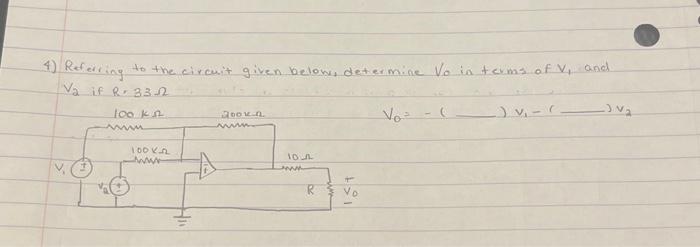 4) Referring to the circuit given below, determine Vo in terms of V1 and
V2 if R = 33 Ω
Vo = - ( ____ ) V1 - ( ____ ) V2
100 kΩ 200kΩ
100 kΩ
10 Ω
V1
V2
R
+
Vo
-